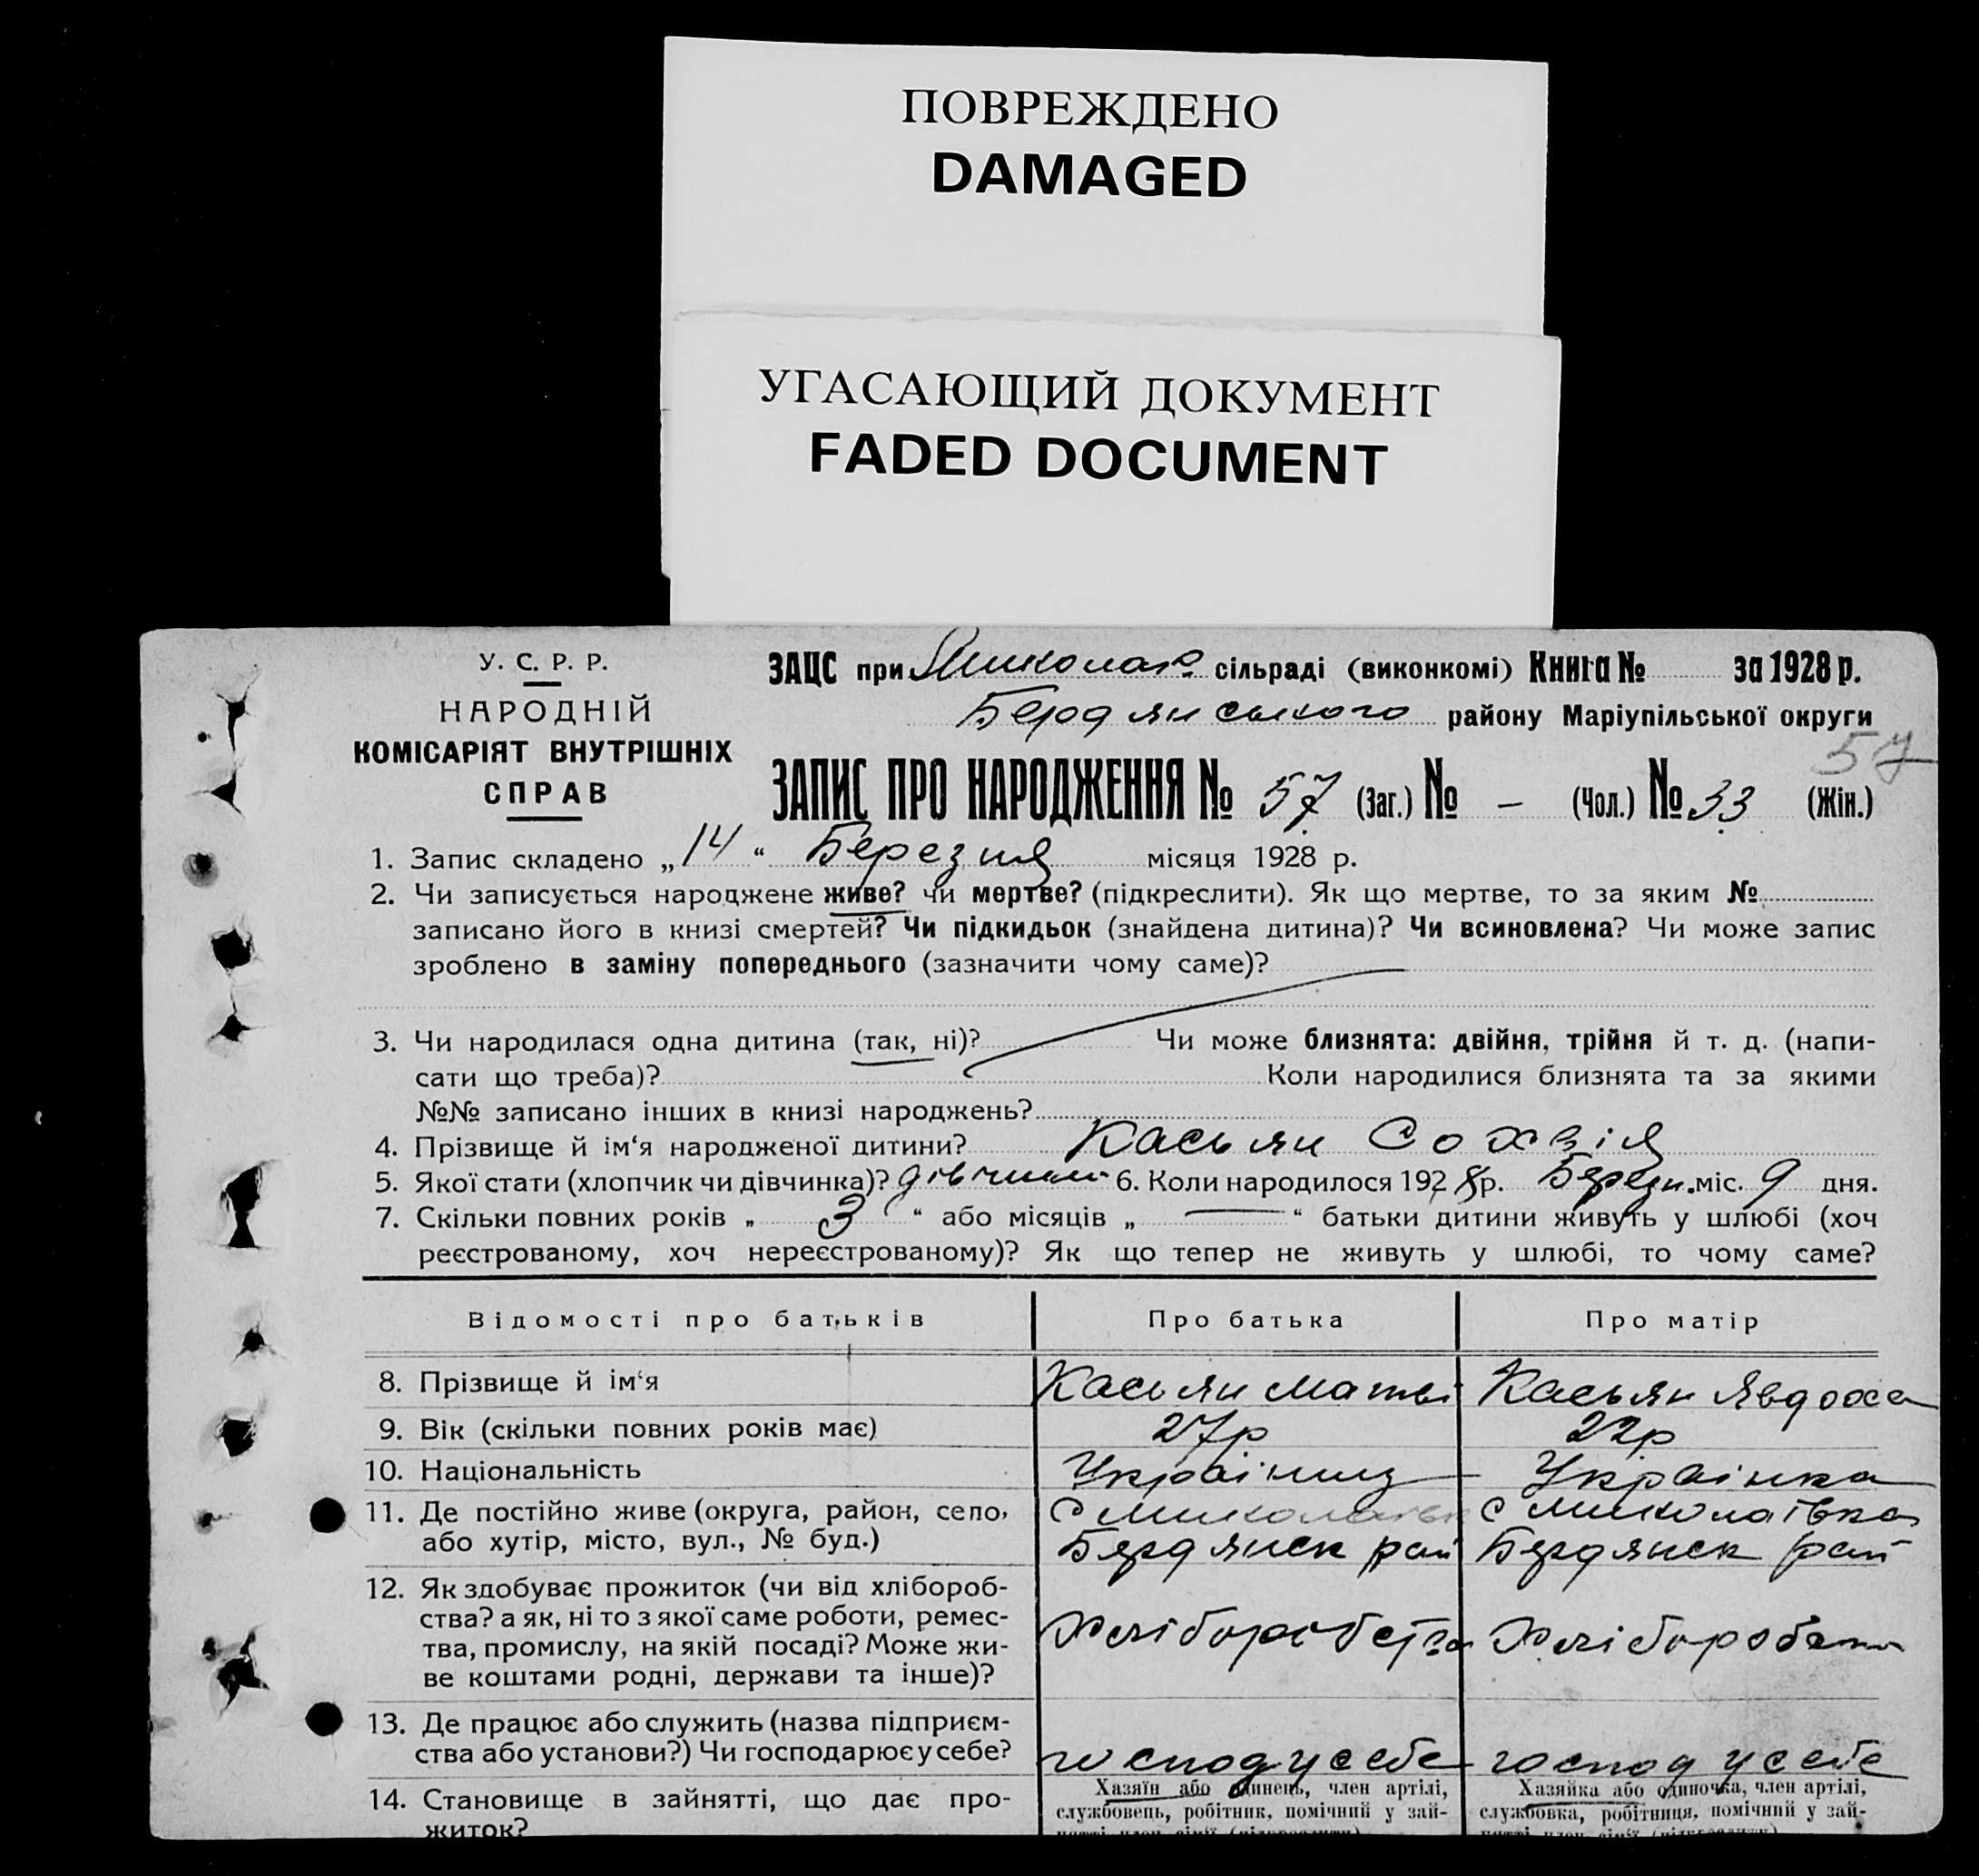 ПОВРЕЖДЕНО
DAMAGED
УГАСАЮЩИЙ ДОКУМЕНТ
FADED DOCUMENT
У. С. Р. Р.
НАРОДНІЙ
КОМІСАРІЯТ ВНУТРІШНІХ
СПРАВ
ЗАЦС при Миколаю. сільраді (виконкомі) Книга № за 1928 р.
Бердянського району Маріупільської округи
57
ЗАПИС ПРО НАРОДЖЕННЯ № 57 (Заг.) № – (Чол.) № 33 (Жін.)
1. Запис складено „14“ Березня місяця 1928 р.
2. Чи записується народжене живе? чи мертве? (підкреслити). Як що мертве, то за яким №
записано його в книзі смертей? Чи підкидьок (знайдена дитина)? Чи всиновлена? Чи може запис
зроблено в заміну попереднього (зазначити чому саме)?
3. Чи народилася одна дитина (так, ні)? Чи може близнята: двійня, трійня й т. д. (напи-
сати що треба)? Коли народилися близнята та за якими
№№ записано інших в книзі народжень?
4. Прізвище й ім‘я народженої дитини? Касьян Сохвія
5. Якої стати (хлопчик чи дівчинка)? дівчинк 6. Коли народилося 1928 р. Березн. міс. 9 дня.
7. Скільки повних років „ 3 “ або місяців „ — “ батьки дитини живуть у шлюбі (хоч
реєстрованому, хоч нереєстрованому)? Як що тепер не живуть у шлюбі, то чому саме?
Відомості про батьків Про батька Про матір
8. Прізвище й ім‘я Касьян Матві Касьян Явдоха
9. Вік (скільки повних років має) 27р 22р
10. Національність Українец Українка
11. Де постійно живе (округа, район, село, с Миколаївк с Миколаївка
або хутір, місто, вул., № буд.) Бердянск рай Бердянск рай
12. Як здобуває прожиток (чи від хлібороб-
ства? а як, ні то з якої саме роботи, ремес-
тва, промислу, на якій посаді? Може жи- Хліборобства Хліборобств
ве коштами родні, держави та інше)?
13. Де працює або служить (назва підприєм-
ства або установи?) Чи господарює у себе? господ у себе господ у себе
14. Становище в зайнятті, що дає про-
житок?
Хазяїн або одинець, член артілі,
службовець, робітник, помічний у зай-
нятті член сім‘ї (підкреслити)
Хазяйка або одиночка, член артілі,
службовка, робітниця, помічний у зай-
нятті член сім‘ї (підкреслити)